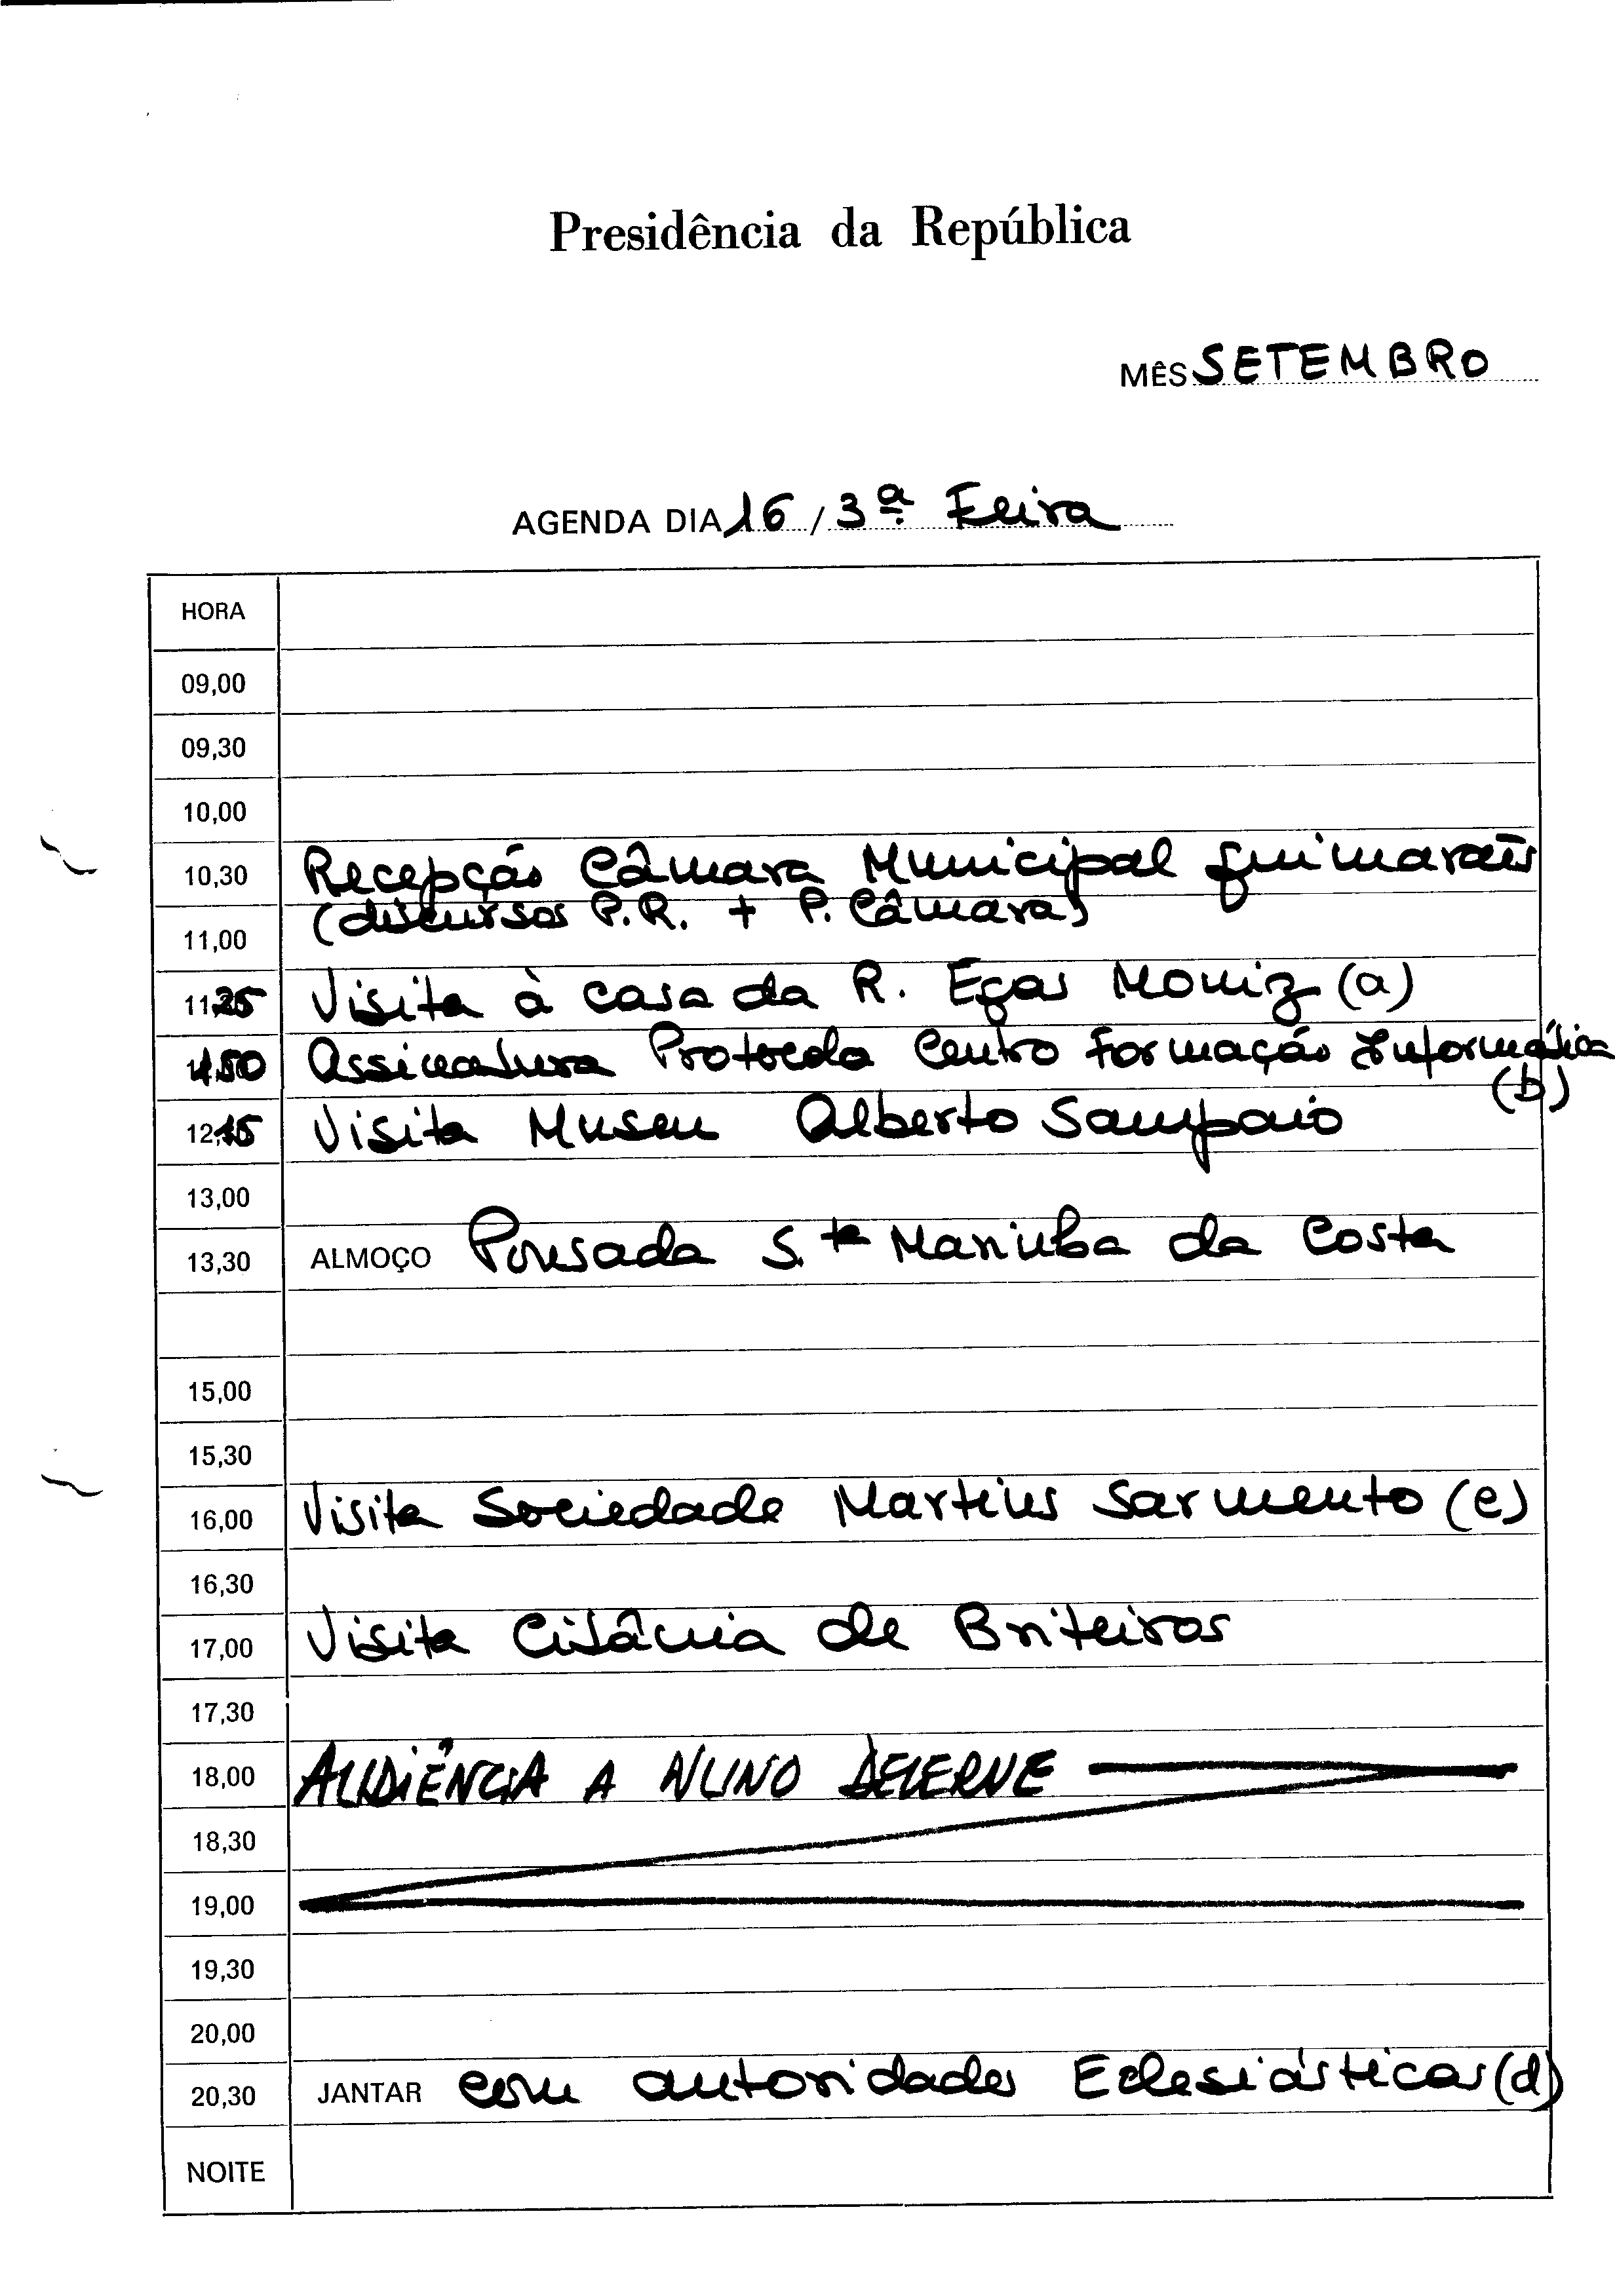 Presidência da República
MÊS SETEMBRO
AGENDA DIA 16 / 3ª Feira
HORA
09,00
09,30
10,00
10,30 Recepção Câmara Municipal Guimarães
(discursos P.R. + P. Câmara)
11,00
11,25 Visita à casa da R. Egas Moniz (a)
11,50 Assinatura Protocolo Centro Formação Informática
(b)
12,15 Visita Museu Alberto Sampaio
13,00
13,30 ALMOÇO Pousada S.ta Marinha da Costa
15,00
15,30
16,00 Visita Sociedade Martins Sarmento (e)
16,30
17,00 Visita Citânia de Briteiros
17,30
18,00 AUDIÊNCIA A NUNO
18,30
19,00
19,30
20,00
20,30 JANTAR com autoridades Eclesiásticas (d)
NOITE